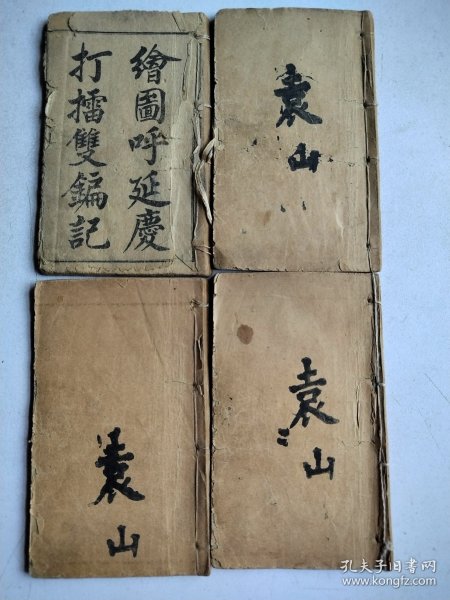 繪圖呼延慶
打擂雙鞭記
袁山
袁山
袁山
孔夫子旧书网
www.kongfz.com